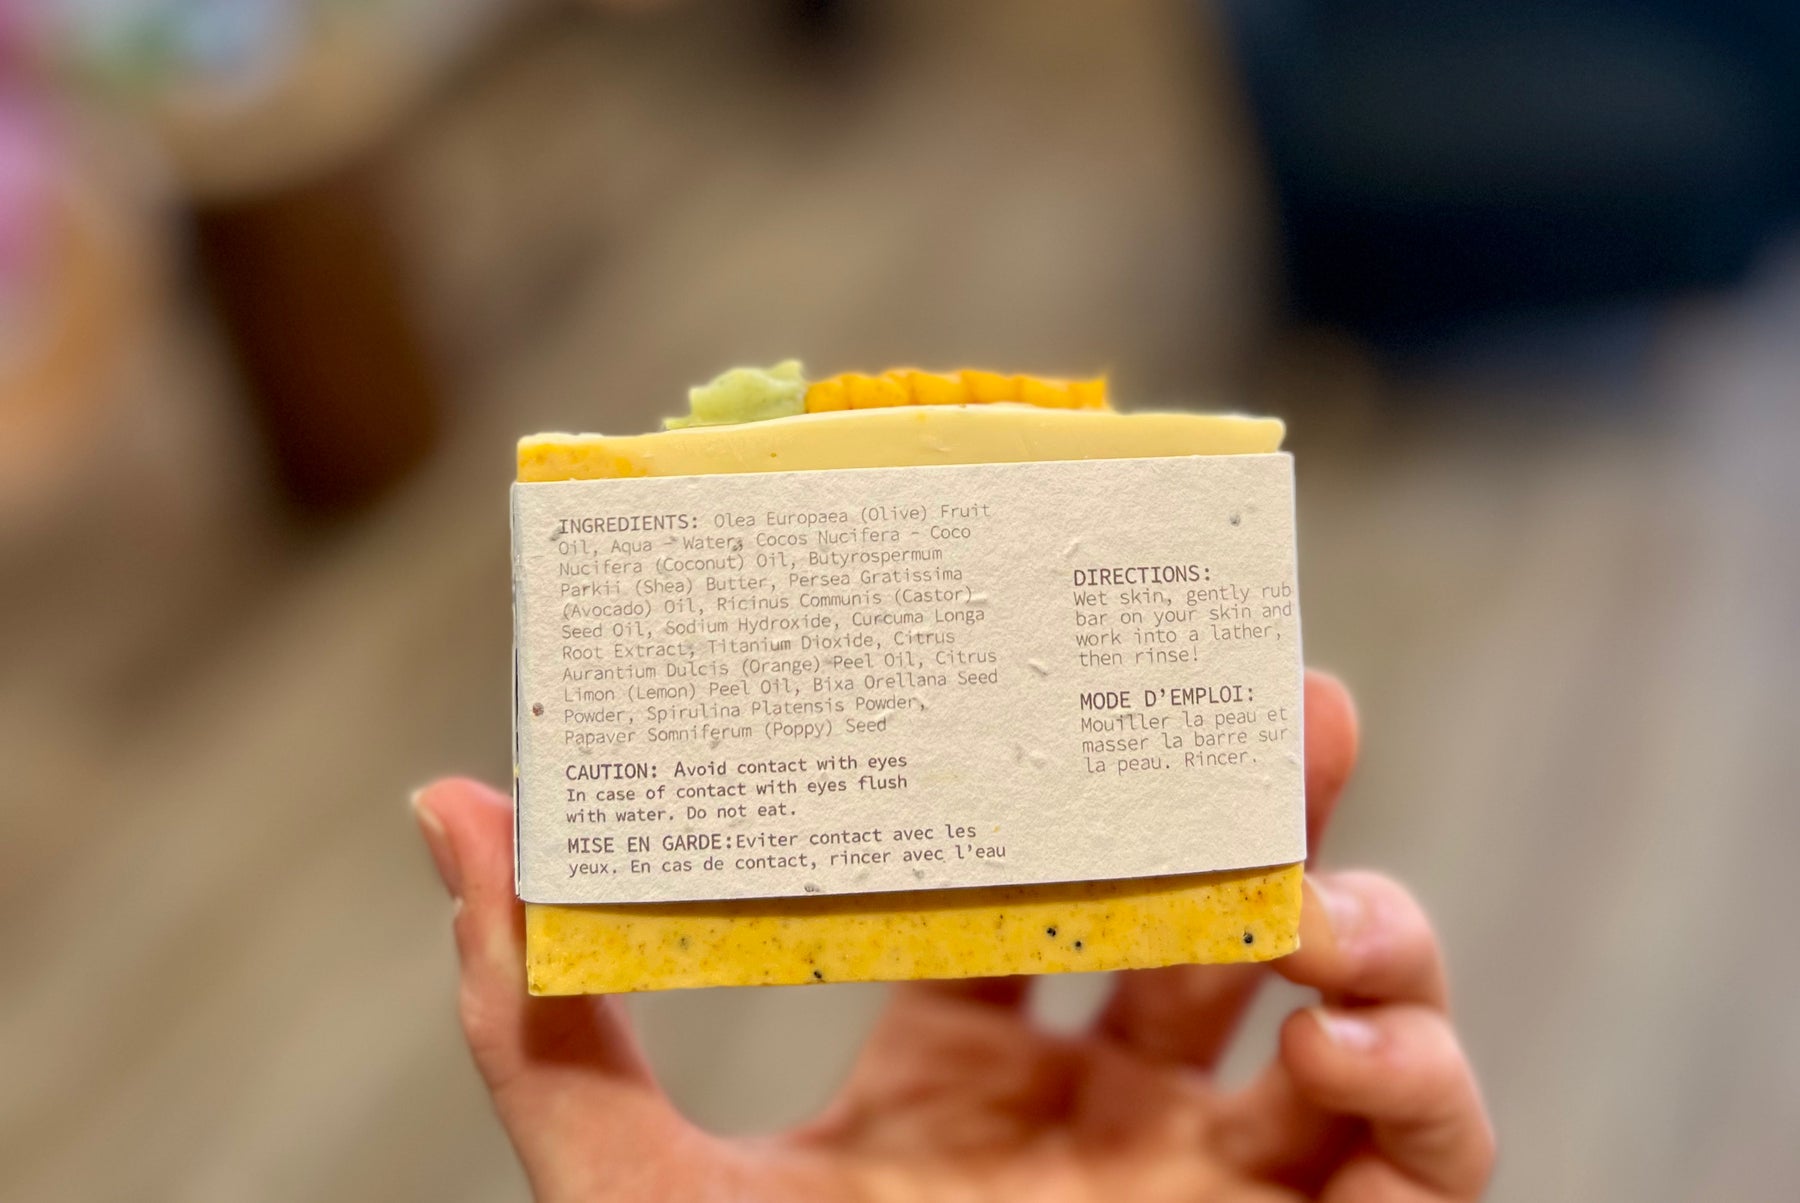 INGREDIENTS: Olea Europaea (Olive) Fruit
Oil, Aqua - Water, Cocos Nucifera - Coco
Nucifera (Coconut) Oil, Butyrospermum
Parkii (Shea) Butter, Persea Gratissima
(Avocado) Oil, Ricinus Communis (Castor)
Seed Oil, Sodium Hydroxide, Curcuma Longa
Root Extract, Titanium Dioxide, Citrus
Aurantium Dulcis (Orange) Peel Oil, Citrus
Limon (Lemon) Peel Oil, Bixa Orellana Seed
Powder, Spirulina Platensis Powder,
Papaver Somniferum (Poppy) Seed
CAUTION: Avoid contact with eyes
In case of contact with eyes flush
with water. Do not eat.
MISE EN GARDE:Eviter contact avec les
yeux. En cas de contact, rincer avec l'eau
DIRECTIONS:
Wet skin, gently rub
bar on your skin and
work into a lather,
then rinse!
MODE D'EMPLOI:
Mouiller la peau et
masser la barre sur
la peau. Rincer.